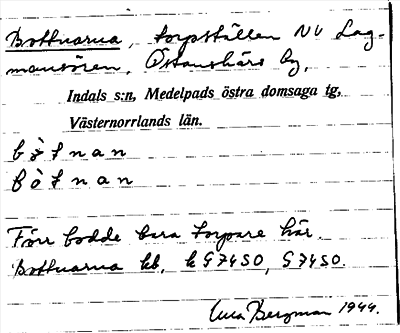 Bottnarna, torpställen NV Lag-
mansören, Östanskärs by,
Indals s:n, Medelpads östra domsaga tg,
Västernorrlands län.
Förr bodde bara torpare här.
Bottnarna kb, k G7450, G7450.
Bergman 1944.